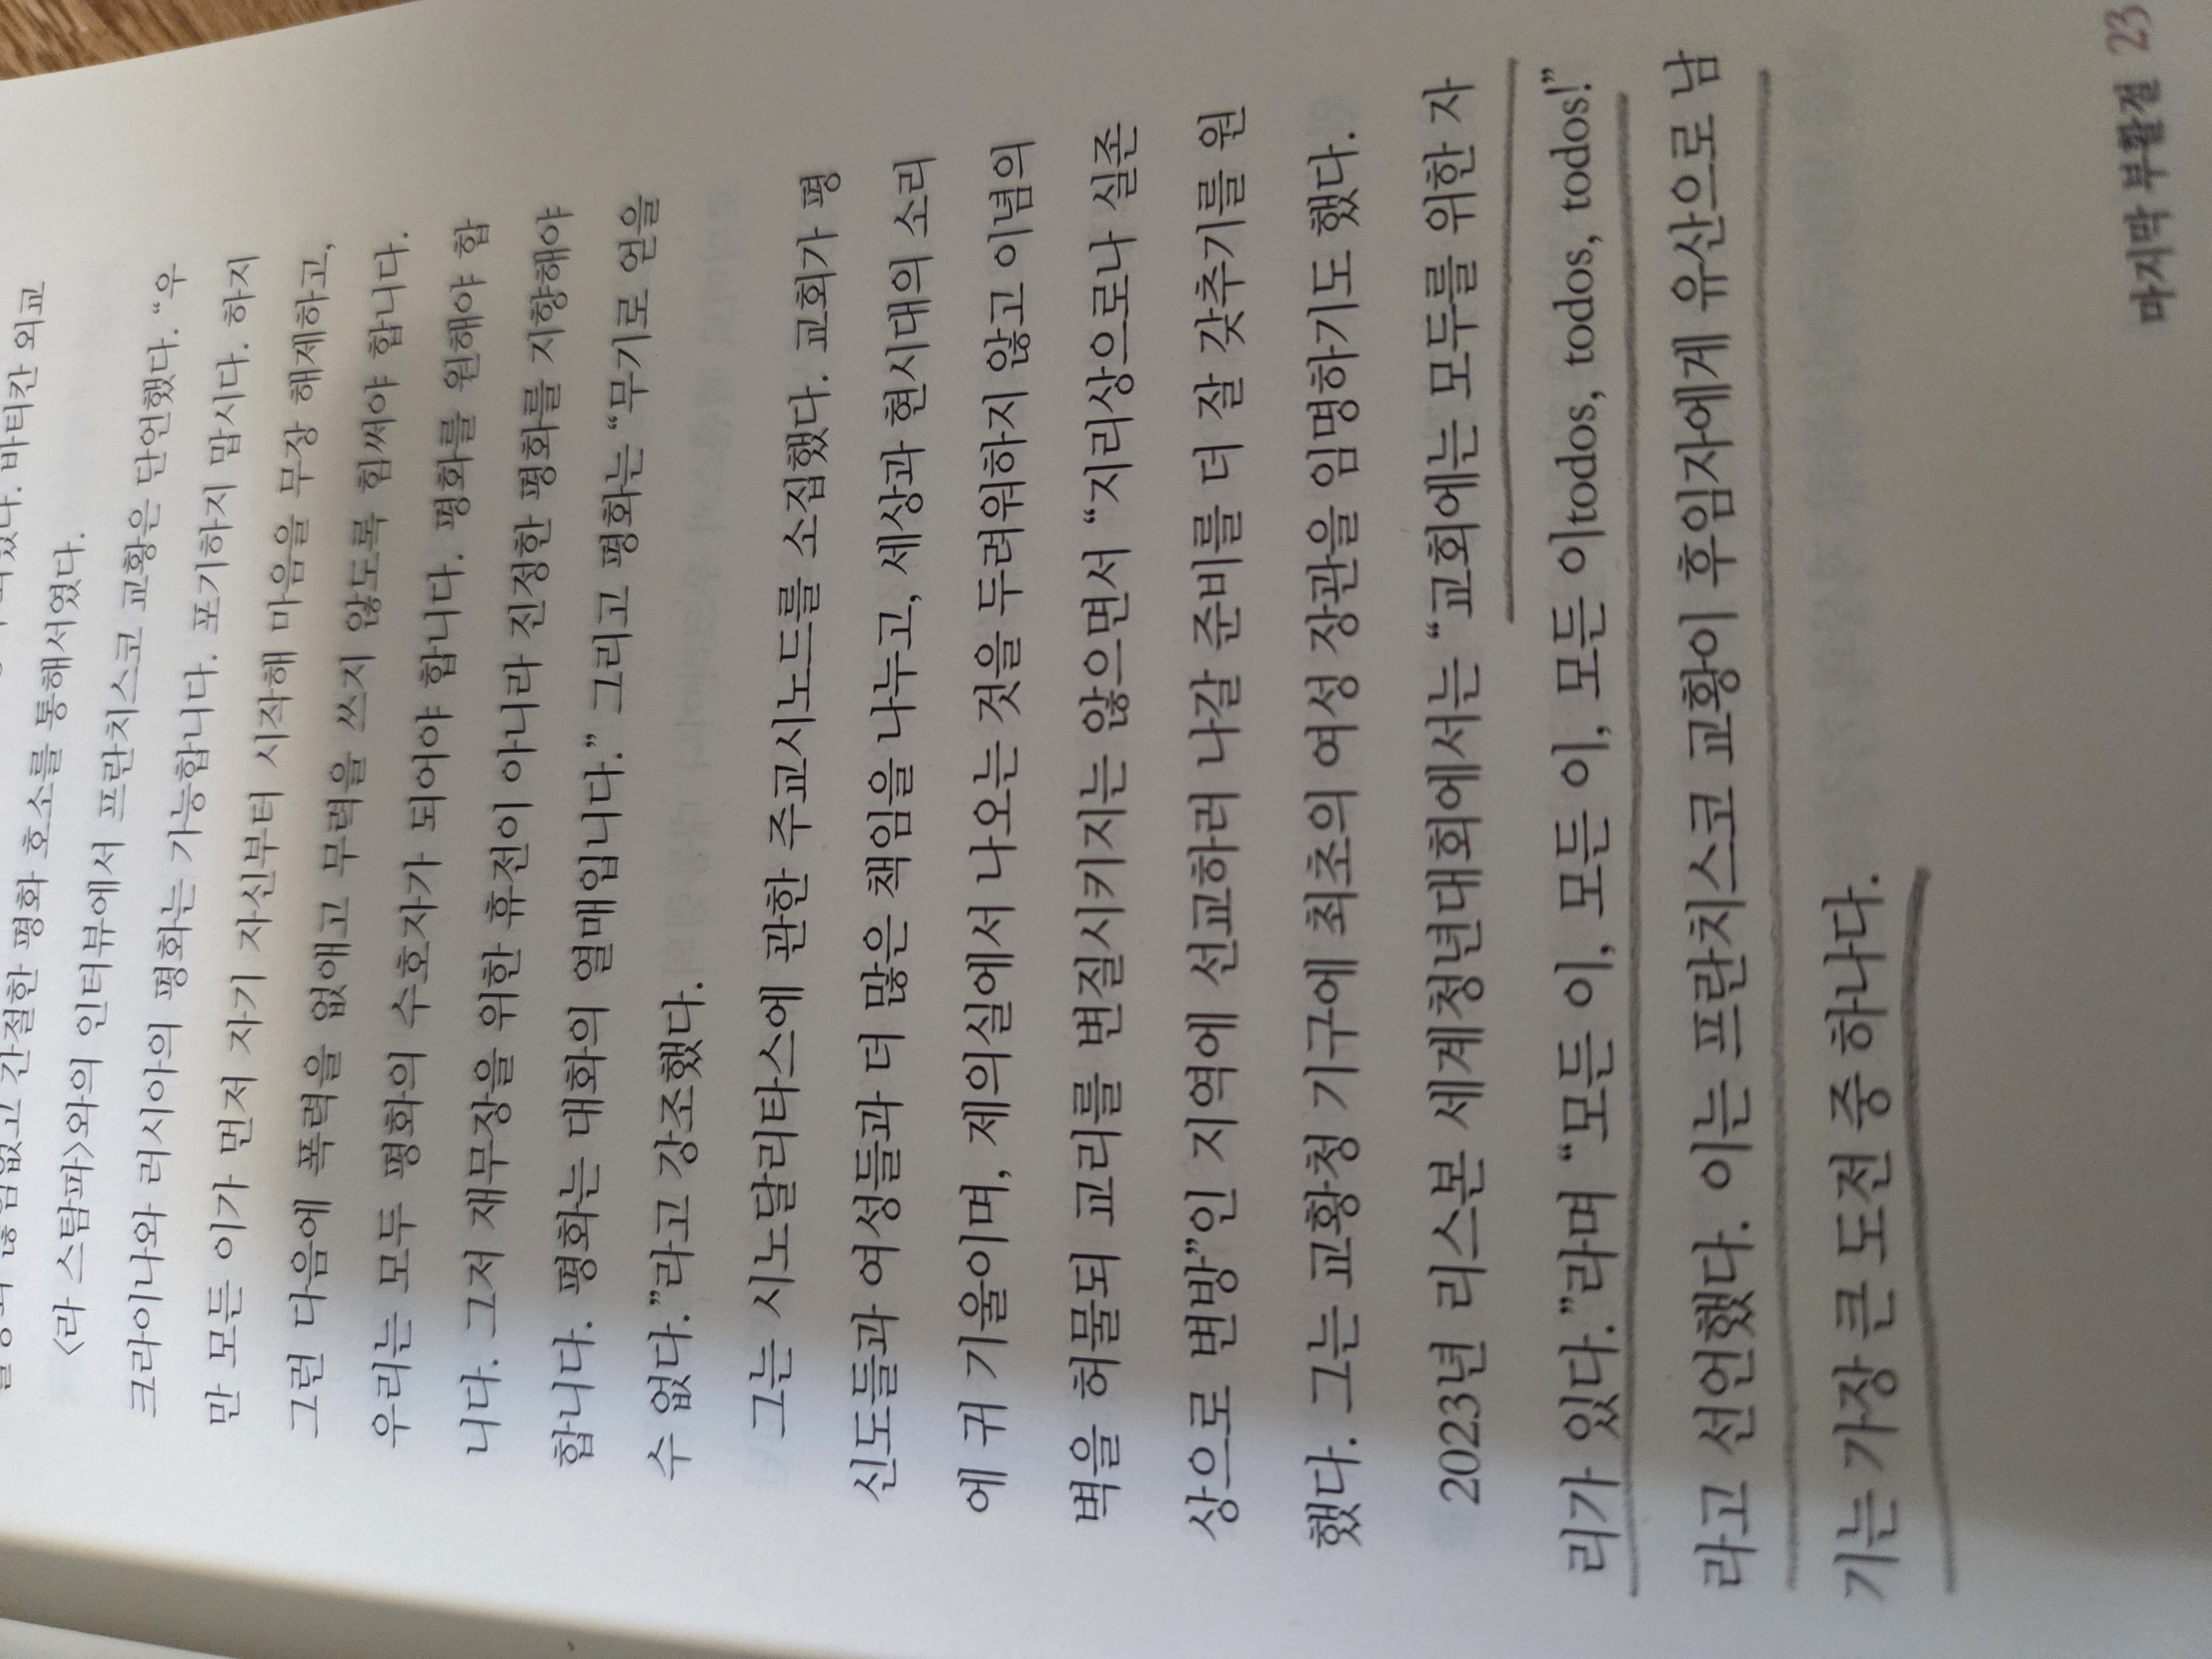 않고 간절한 평화 호소를 통해서였다. 바티칸 외교
<라 스탐파>와의 인터뷰에서 프란치스코 교황은 단언했다. “우
크라이나와 러시아의 평화는 가능합니다. 포기하지 맙시다. 하지
만 모든 이가 먼저 자기 자신부터 시작해 마음을 무장 해제하고,
그런 다음에 폭력을 없애고 무력을 쓰지 않도록 힘써야 합니다.
우리는 모두 평화의 수호자가 되어야 합니다. 평화를 원해야 합
니다. 그저 재무장을 위한 휴전이 아니라 진정한 평화를 지향해야
합니다. 평화는 대화의 열매입니다.” 그리고 평화는 “무기로 얻을
수 없다.”라고 강조했다.
그는 시노달리타스에 관한 주교시노드를 소집했다. 교회가 평
신도들과 여성들과 더 많은 책임을 나누고, 세상과 현시대의 소리
에 귀 기울이며, 제의실에서 나오는 것을 두려워하지 않고 이념의
벽을 허물되 교리를 변질시키지는 않으면서 “지리상으로나 실존
상으로 변방”인 지역에 선교하러 나갈 준비를 더 잘 갖추기를 원
했다. 그는 교황청 기구에 최초의 여성 장관을 임명하기도 했다.
2023년 리스본 세계청년대회에서는 “교회에는 모두를 위한 자
리가 있다.”라며 “모든 이, 모든 이, 모든 이todos, todos, todos!”
라고 선언했다. 이는 프란치스코 교황이 후임자에게 유산으로 남
기는 가장 큰 도전 중 하나다.
마지막 부활절 23